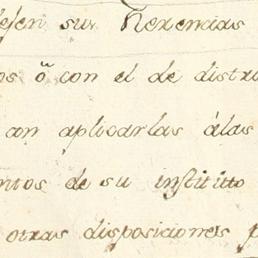 dejen sus herencias
os ó con el de distri
con aplicarlas á las
ntos de su instituto
otras disposiciones p